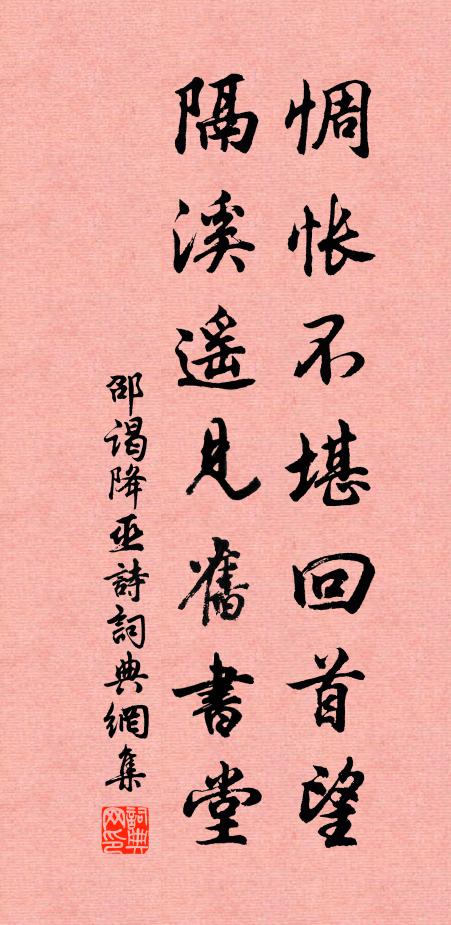 惆悵不堪回首望
隔溪遥見舊書堂
邵謁降巫詩詞典網集
詞典網印